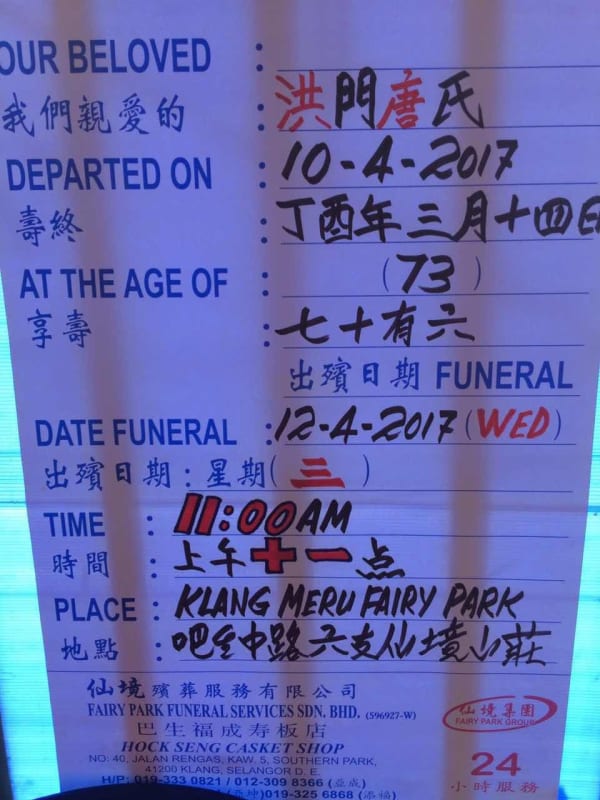 OUR BELOVED :
我們親愛的 洪門唐氏
DEPARTED ON : 10-4-2017
壽終 丁酉年三月十四日
AT THE AGE OF : (73)
享壽 : 七十有六
出殯日期 FUNERAL
DATE FUNERAL : 12-4-2017 (WED)
出殯日期 : 星期(三)
TIME : 11:00AM
時間 : 上午十一点
PLACE : KLANG MERU FAIRY PARK
地點 : 吧生中路六支仙境山莊
仙境殯葬服務有限公司
FAIRY PARK FUNERAL SERVICES SDN. BHD. (596927-W)
巴生福成寿板店
HOCK SENG CASKET SHOP
NO: 40, JALAN RENGAS, KAW. 5, SOUTHERN PARK,
41200 KLANG, SELANGOR D. E.
H/P: 019-333 0821 / 012-309 8366 (亞成)
019-325 6868 (添福)
仙境集團
FAIRY PARK GROUP
24
小時服務